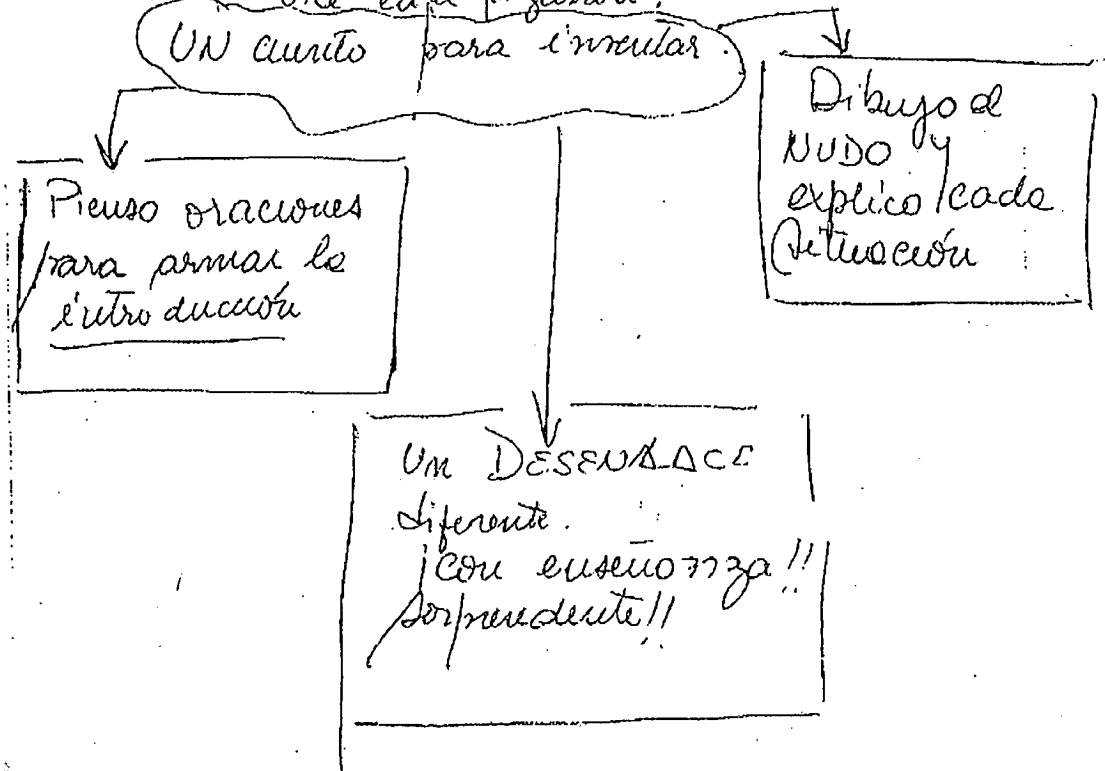 UN cuento para inventar.
Pienso oraciones
para armar la
introducción
Dibujo el
NUDO y
explico cada
situación
Un DESENLACE
diferente.
¡Con enseñanza!!
sorprendente!!